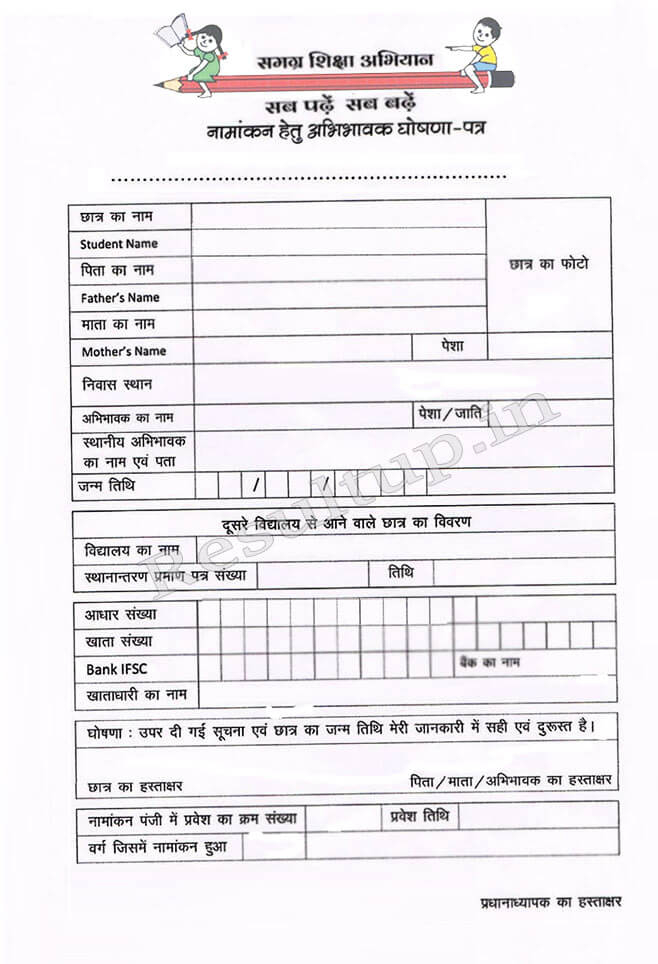 समग्र शिक्षा अभियान
सब पढ़ें सब बढ़ें
नामांकन हेतु अभिभावक घोषणा-पत्र
छात्र का नाम
Student Name
पिता का नाम
छात्र का फोटो
Father's Name
माता का नाम
Mother's Name पेशा
निवास स्थान
अभिभावक का नाम पेशा/जाति
स्थानीय अभिभावक
का नाम एवं पता
जन्म तिथि / /
दूसरे विद्यालय से आने वाले छात्र का विवरण
विद्यालय का नाम
स्थानान्तरण प्रमाण पत्र संख्या तिथि
आधार संख्या
खाता संख्या
Bank IFSC बैंक का नाम
खाताधारी का नाम
घोषणा : उपर दी गई सूचना एवं छात्र का जन्म तिथि मेरी जानकारी में सही एवं दुरूस्त है।
छात्र का हस्ताक्षर पिता/माता/अभिभावक का हस्ताक्षर
नामांकन पंजी में प्रवेश का क्रम संख्या प्रवेश तिथि
वर्ग जिसमें नामांकन हुआ
प्रधानाध्यापक का हस्ताक्षर
Resultup.in